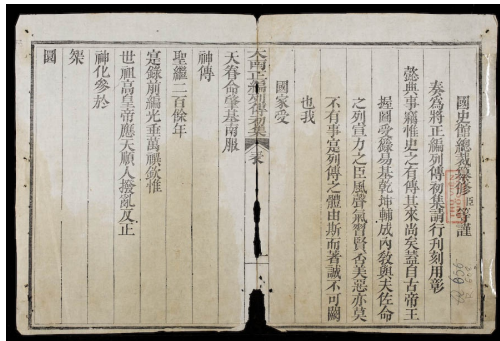 國史館總裁纂修臣等謹
奏為將正編列傳初集請行刊刻用彰
懿典事竊惟史之有傳其來尚矣蓋自古帝王
握圖受籙易基乾坤輔成內敎與夫佐命
之列宣力之臣風聲氣習賢否美惡亦莫
不有事寔列傳之體由斯而著誠不可闕
也我
國家受
大南正編列傳初集 表
天眷命肇基南服
神傳
聖繼二百餘年
寔錄前編光垂萬禩欽惟
世祖高皇帝應天順人撥亂反正
神化參於
榘
圜